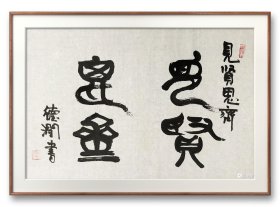 見賢思齊
見賢
思齊
德潤書